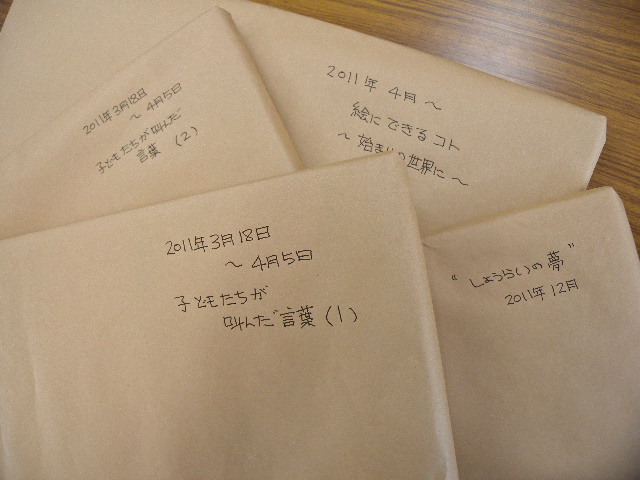 2011年3月18日
～4月5日
子どもたちが叫んだ
言葉（2）
2011年 4月 ～
絵にできるコト
～始まりの世界に～
2011年3月18日
～4月5日
子どもたちが
叫んだ言葉（1）
"しょうらいの夢"
2011年12月